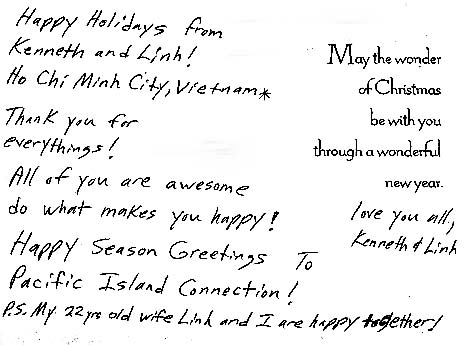 Happy Holidays from
Kenneth and Linh!
Ho Chi Minh City, Vietnam*
Thank you for
everythings!
All of you are awesome
do what makes you happy!
Happy Season Greetings To
Pacific Island Connection!
P.S. My 22 yrs old wife Linh and I are happy together!
May the wonder
of Christmas
be with you
through a wonderful
new year.
love you all,
Kenneth & Linh